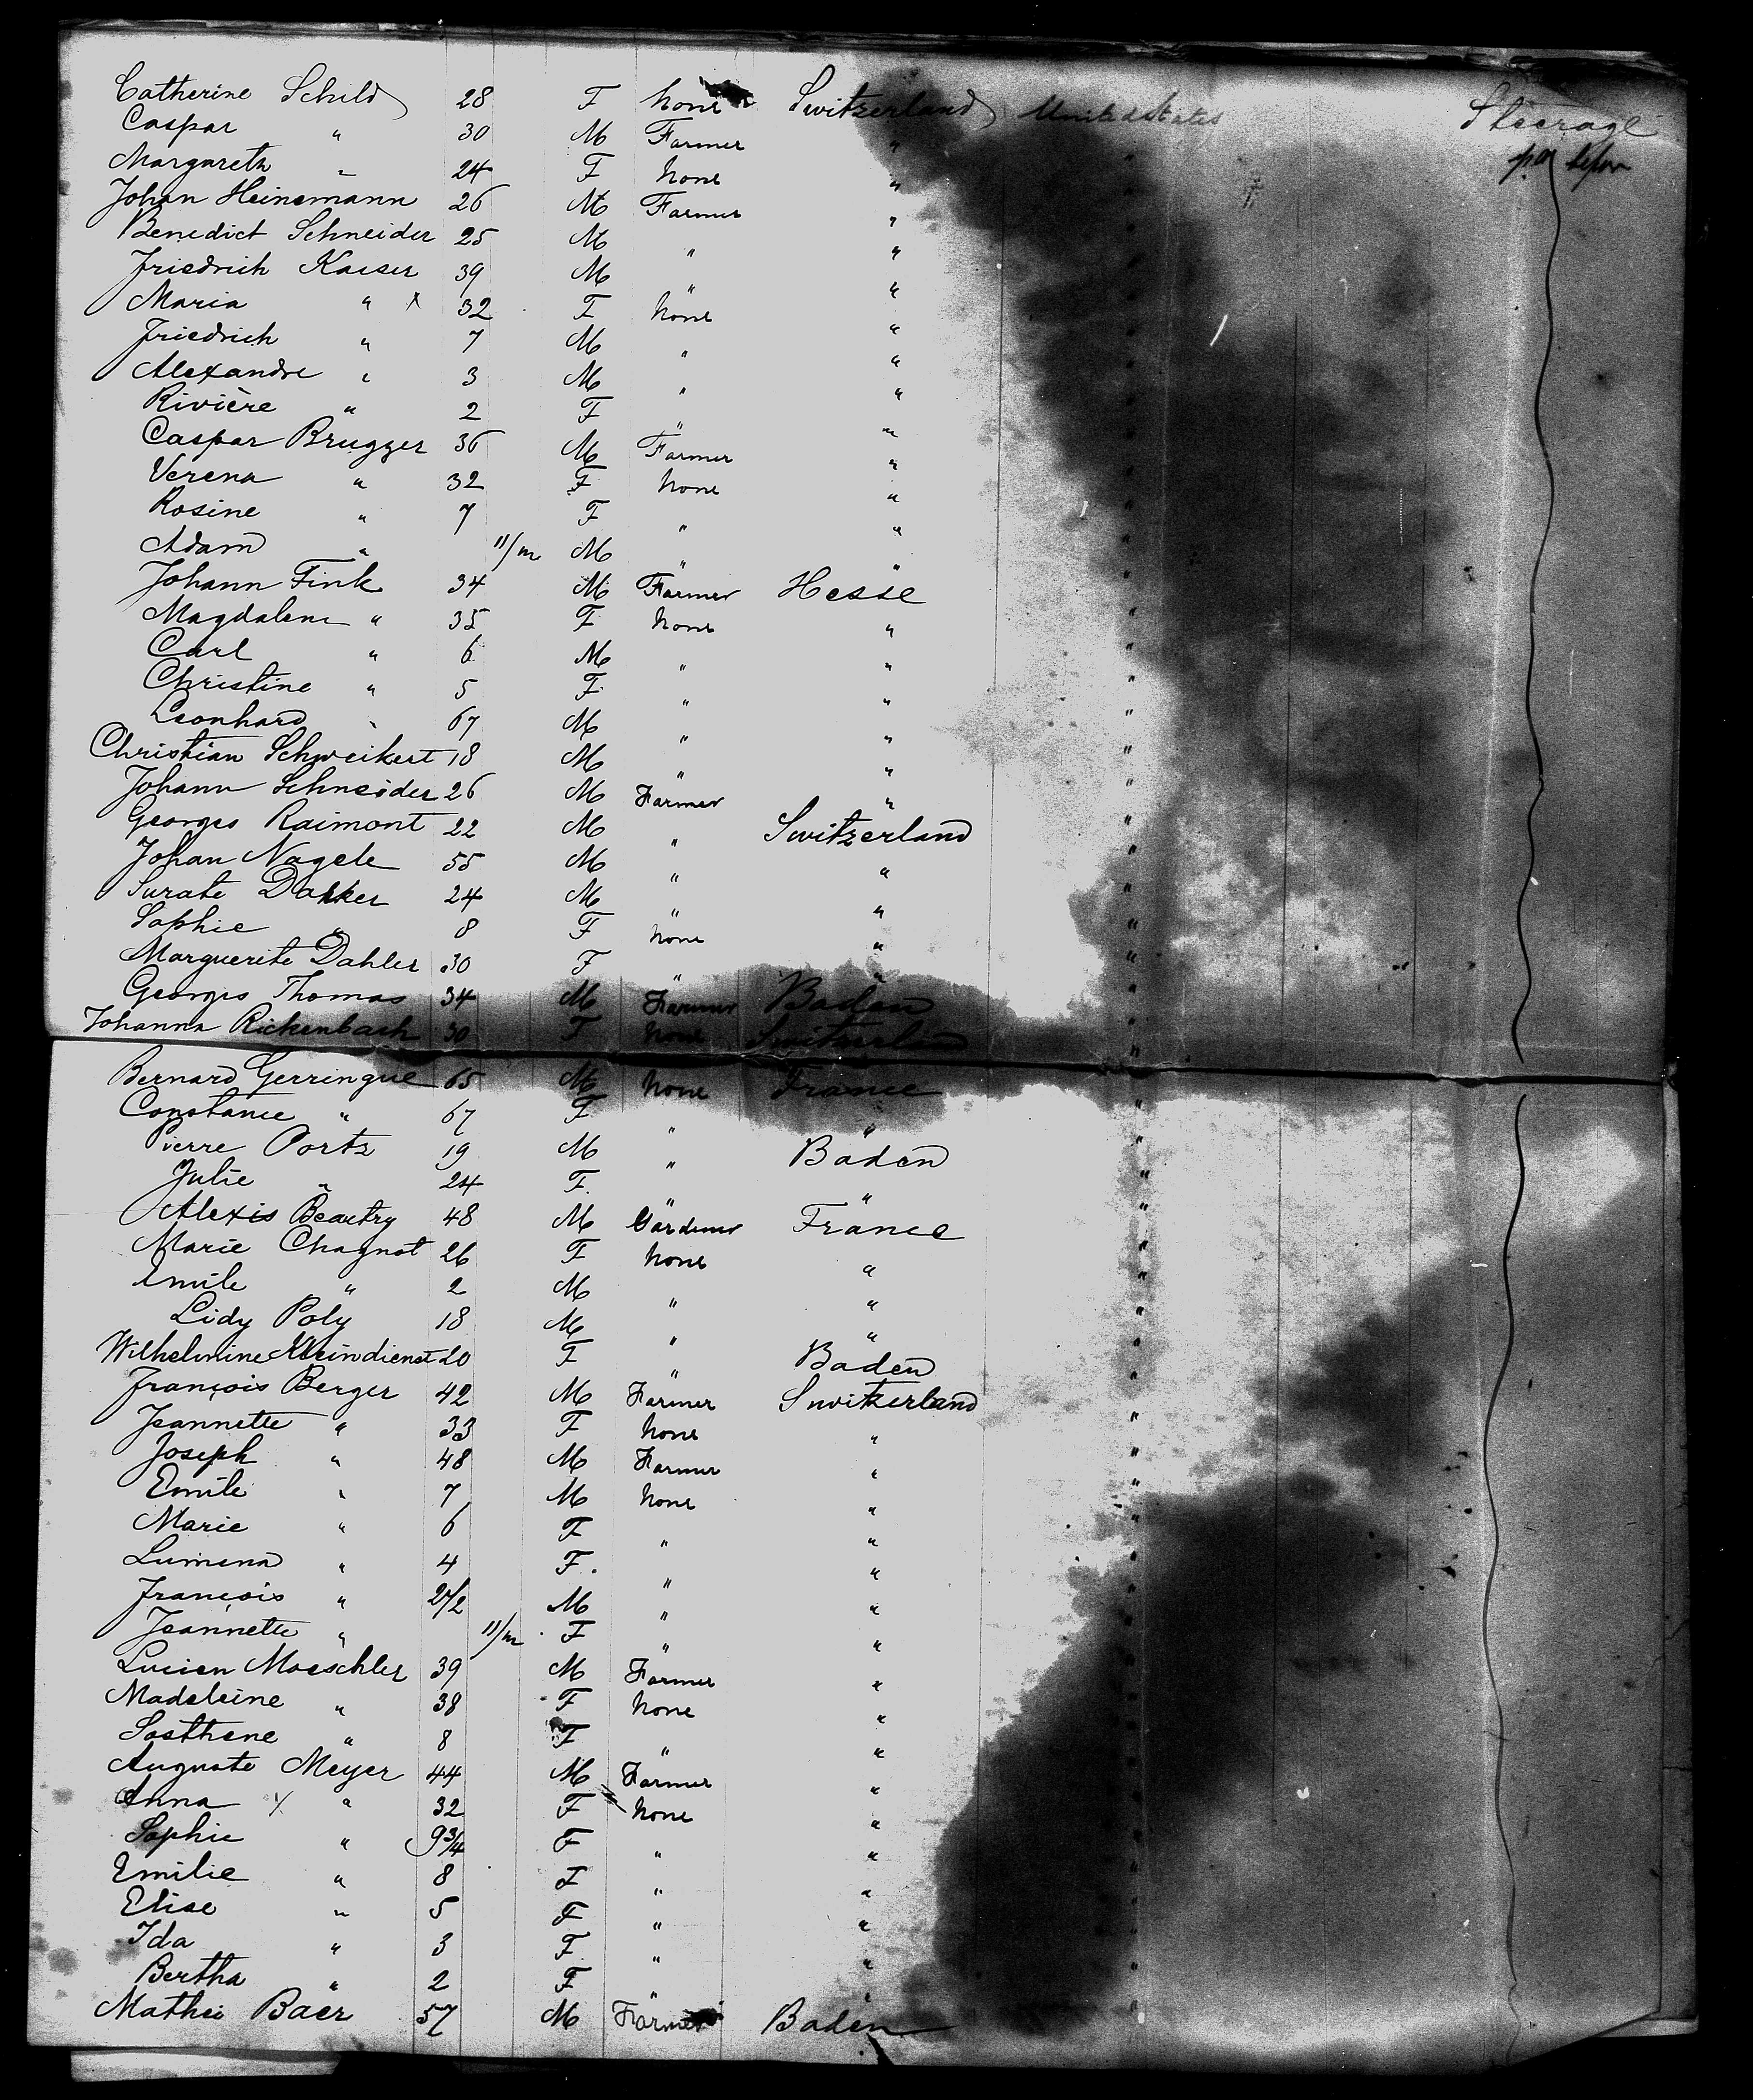 Catherine Schild 28 F None Switzerland United States Steerage
Caspar " 30 M Farmer "
Margareth " 24 F None "
Johan Heinemann 26 M Farmer "
Benedict Schneider 25 M " "
Friedrich Kaeser 39 M " "
Maria " x 32 F None "
Friedrich " 7 M " "
Alexandre " 3 M " "
Rivière " 2 F " "
Caspar Brugger 36 M Farmer "
Verena " 32 F None "
Rosine " 7 F " "
Adam " 11/m M " "
Johann Fink 34 M Farmer Hesse
Magdalena " 35 F None "
Carl " 6 M " "
Christine " 5 F " "
Leonhard " 67 M " "
Christian Schweikert 18 M " "
Johann Schneider 26 M Farmer "
Georges Raimont 22 M " Switzerland
Johan Nagele 55 M " "
Surate 24 M " "
Sophie " 8 F None "
Marguerite Dahler 30 F " "
Georges Thomas 34 M Farmer Baden
Johanna Rickenbach 30 F None
Bernard Gerringue 65 M None France
Constance " 67 F " "
Pierre Portz 19 M " Baden
Julie " 24 F " "
Alexis Beautry 48 M Gardener France
Marie Chagnot 26 F None "
Emile " 2 M " "
Lidy Poly 18 M " "
Wilhelmine Kleindienst 20 F " Baden
François Berger 42 M Farmer Switzerland
Jeannette " 33 F None "
Joseph " 48 M Farmer "
Emile " 7 M None "
Marie " 6 F " "
Lumena " 4 F " "
François " 2 1/2 M " "
Jeannette " 11/m F " "
Lucien Moeschler 39 M Farmer "
Madeleine " 38 F None "
Sosthene " 8 F " "
Auguste Meyer 44 M Farmer "
Anna x " 32 F None "
Sophie " 9 3/4 F " "
Emilie " 8 F " "
Elise " 5 F " "
Ida " 3 F " "
Bertha " 2 F " "
Mathei Baer 57 M Farmer Baden